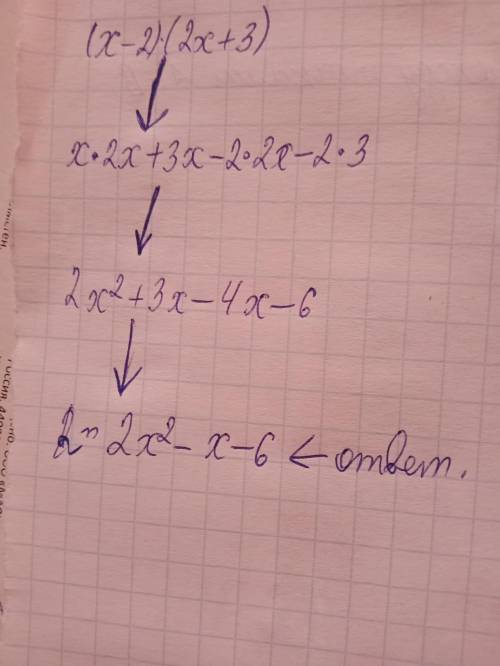 (x-2)·(2x+3)
x·2x+3x-2·2x-2·3
2x²+3x-4x-6
2x²-x-6 ← ответ.